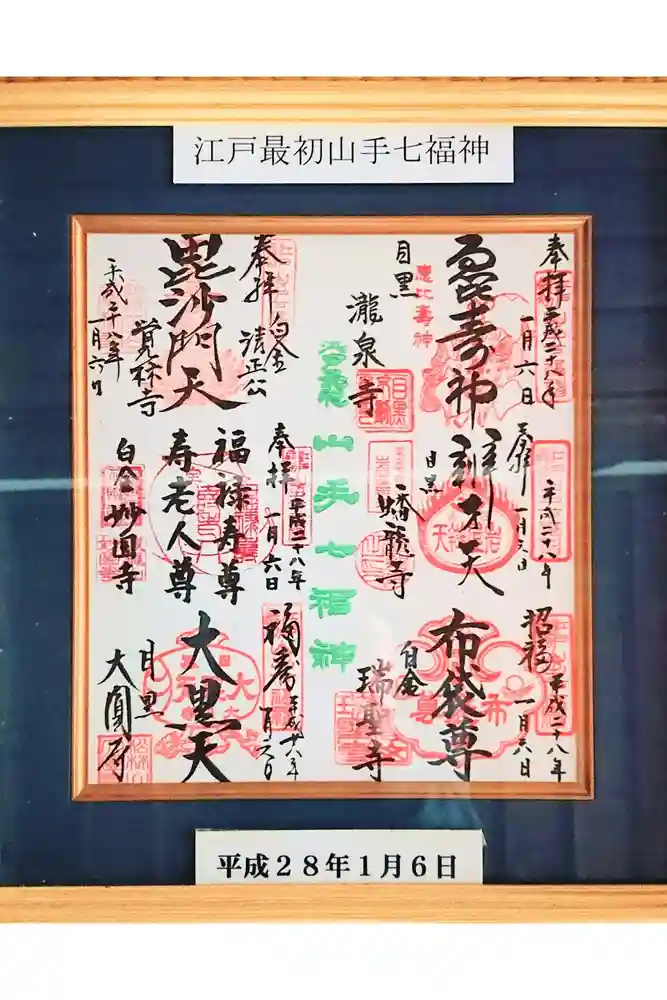 江戸最初山手七福神
奉拝
平成二十八年
一月六日
恵比寿神
目黒
瀧泉寺
奉拝
平成二十八年
一月六日
辨才天
目黒
蟠龍寺
招福
平成二十八年
一月六日
布袋尊
白金
瑞聖寺
山手七福神
奉拝
白金
清正公
毘沙門天
覚林寺
平成二十八年
一月六日
奉拝
平成二十八年
一月六日
福禄寿尊
寿老人尊
白金
妙円寺
福寿
平成廿八年
一月六日
大黒天
目黒
大圓寺
平成28年1月6日